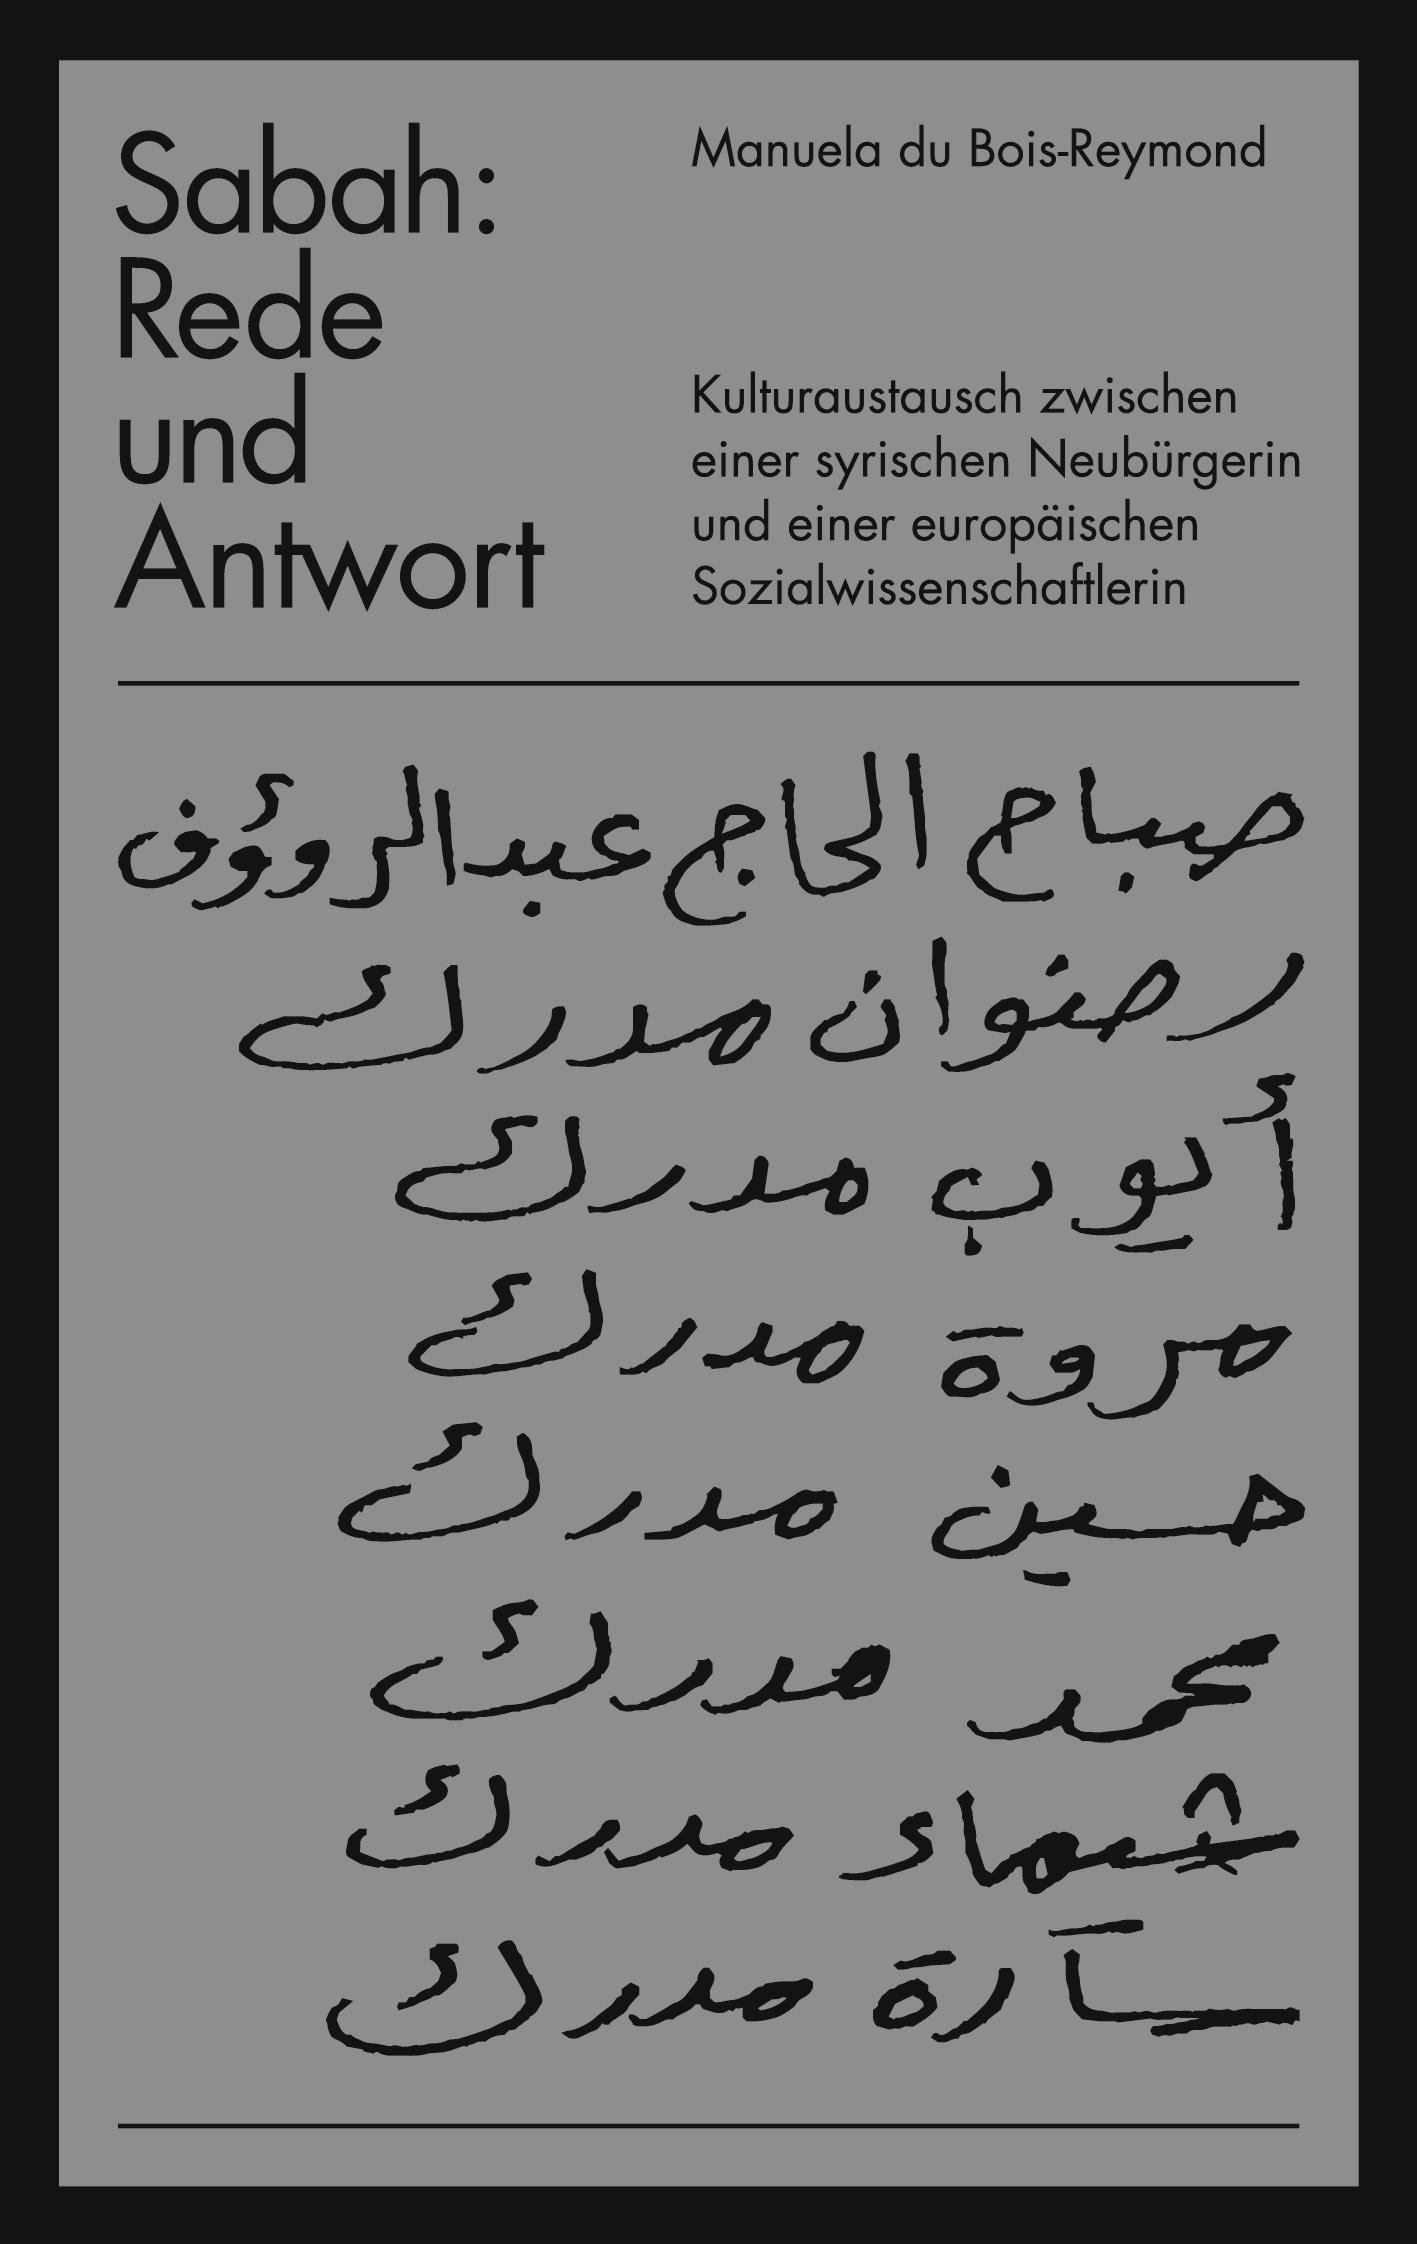 Sabah:
Rede
und
Antwort
Manuela du Bois-Reymond
Kulturaustausch zwischen
einer syrischen Neubürgerin
und einer europäischen
Sozialwissenschaftlerin
صباح الحاج عبدالروؤف
رضوان مدرك
أيوب مدرك
مروة مدرك
حسين مدرك
محمد مدرك
شيماء مدرك
سارة مدرك